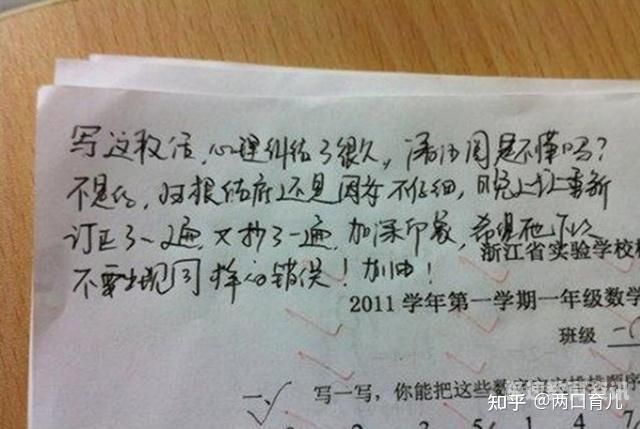 写这段话,心理纠结了很久,满江同是不懂吗?
不是的,归根结底还是因为不仔细,昨晚上让重新
订正了一遍,又抄了一遍,加深印象,希望他下次
不要出现同样的错误!加油!
浙江省实验学校
2011 学年第一学期一年级数学
班级 一(
一、写一写,你能把这些数
顺序
3 5 1 4 7
知乎 @两口育儿